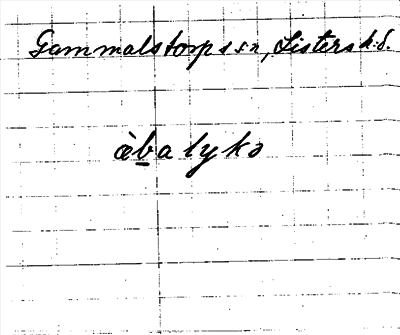 Gammalstorps sn, Listers hd.
àba lyko